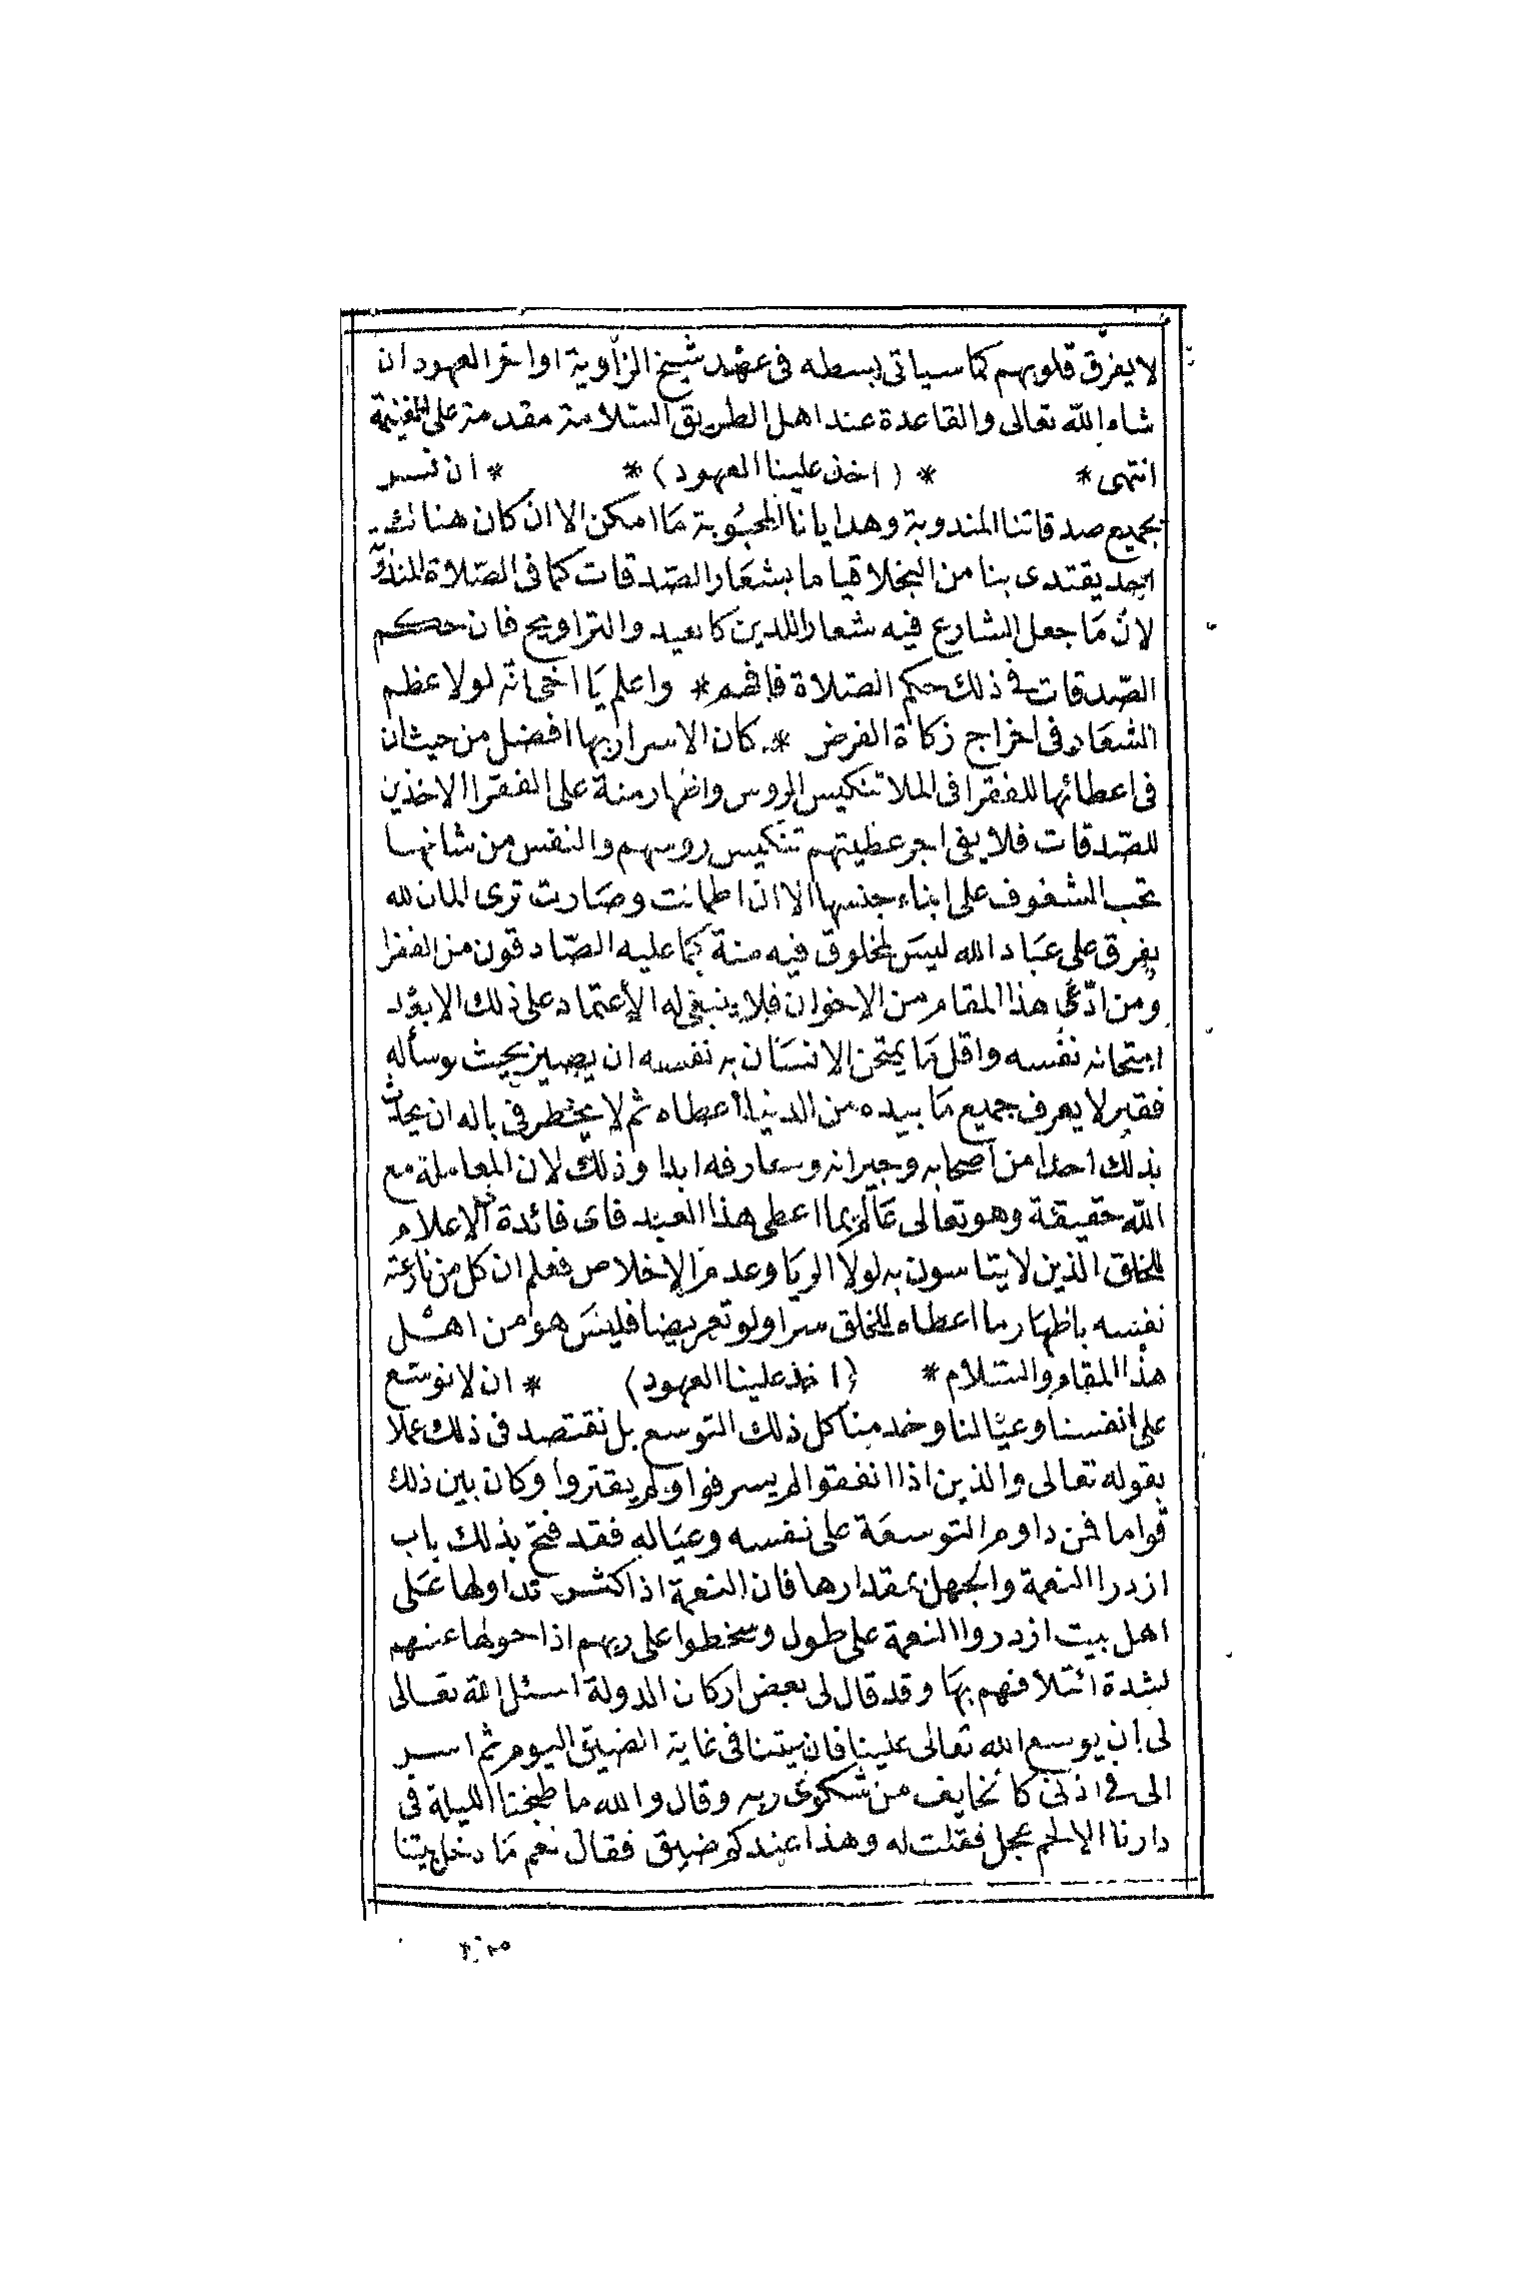 لا يفرق قلوبهم كما سياتى بسطه فى عهد شيخ الزاوية اواخر العهود ان
شاء الله تعالى والقاعدة عند اهل الطريق السلامة مقدمة على الغنيمة
انتهى * * (اخذ علينا العهود) * * ان نسر
بجميع صدقاتنا المندوبة وهدايانا المحبوبة ما امكن الا ان كان هناك
احد يقتدى بنا من البخلا قياما بشعار الصدقات كما فى الصلاة
لان ما جعل الشارع فيه شعار اللدين كالعيد والتراويح فان حكم
الصدقات فى ذلك حكم الصلاة فافهم * واعلم يا اخى انه لولا عظم
الشعار فى اخراج زكاة الفرض * كان الاسرار بها افضل من حيث ان
فى اعطائها للفقرا فى الملا تنكيس الروس واظهار منة على الفقرا الاخذين
للصدقات فلا يفى اجر عطيتهم تنكيس روسهم والنفس من شانها
تحب الشفوف على ابناء جنسها الا ان اطمانت وصارت ترى المان لله
يفرق على عباد الله ليس لمخلوق فيه منة كما عليه الصادقون من الفقرا
ومن ادعى هذا المقام من الاخوان فلا ينبغى له الاعتماد على ذلك الا بعد
امتحانه نفسه واقل ما يمتحن الانسان به نفسه ان يصير بحيث لو سأله
فقير لا يعرف جميع ما بيده من الدنيا اعطاه ثم لا يخطر فى باله ان يحدث
بذلك احدا من اصحابه وجيرانه ومعارفه ابدا وذلك لان المعاملة مع
الله حقيقة وهو تعالى عالم بما اعطى هذا العبد فاى فائدة الاعلام
للخلق الذين لا يتاسون به لولا الريا وعدم الاخلاص فعلم ان كل من نازعته
نفسه باظهار ما اعطاه للخلق سرا ولو تعريضا فليس هو من اهل
هذا المقام والسلام * (اخذ علينا العهود) * ان لا نوسع
على انفسنا وعيالنا وخدمنا كل ذلك التوسع بل نقتصد فى ذلك عملا
بقوله تعالى والذين اذا انفقوا لم يسرفوا ولم يقتروا وكان بين ذلك
قواما فمن داوم التوسعة على نفسه وعياله فقد فتح بذلك باب
ازدرا النعمة والجهل بمقدارها فان النعمة اذا كثر تداولها على
اهل بيت ازدروا النعمة على طول وسخطوا على ربهم اذا حولها عنهم
لشدة ائتلافهم بها وقد قال لى بعض اركان الدولة اسئل الله تعالى
لى ان يوسع الله تعالى علينا فان بيتنا فى غاية الضيق اليوم ثم اسر
الى فى اذنى كالخايف من شكوى ربه وقال والله ما طبخنا الليلة فى
دارنا الا لحم عجل فقلت له وهذا عندكم ضيق فقال نعم ما دخل بيتنا